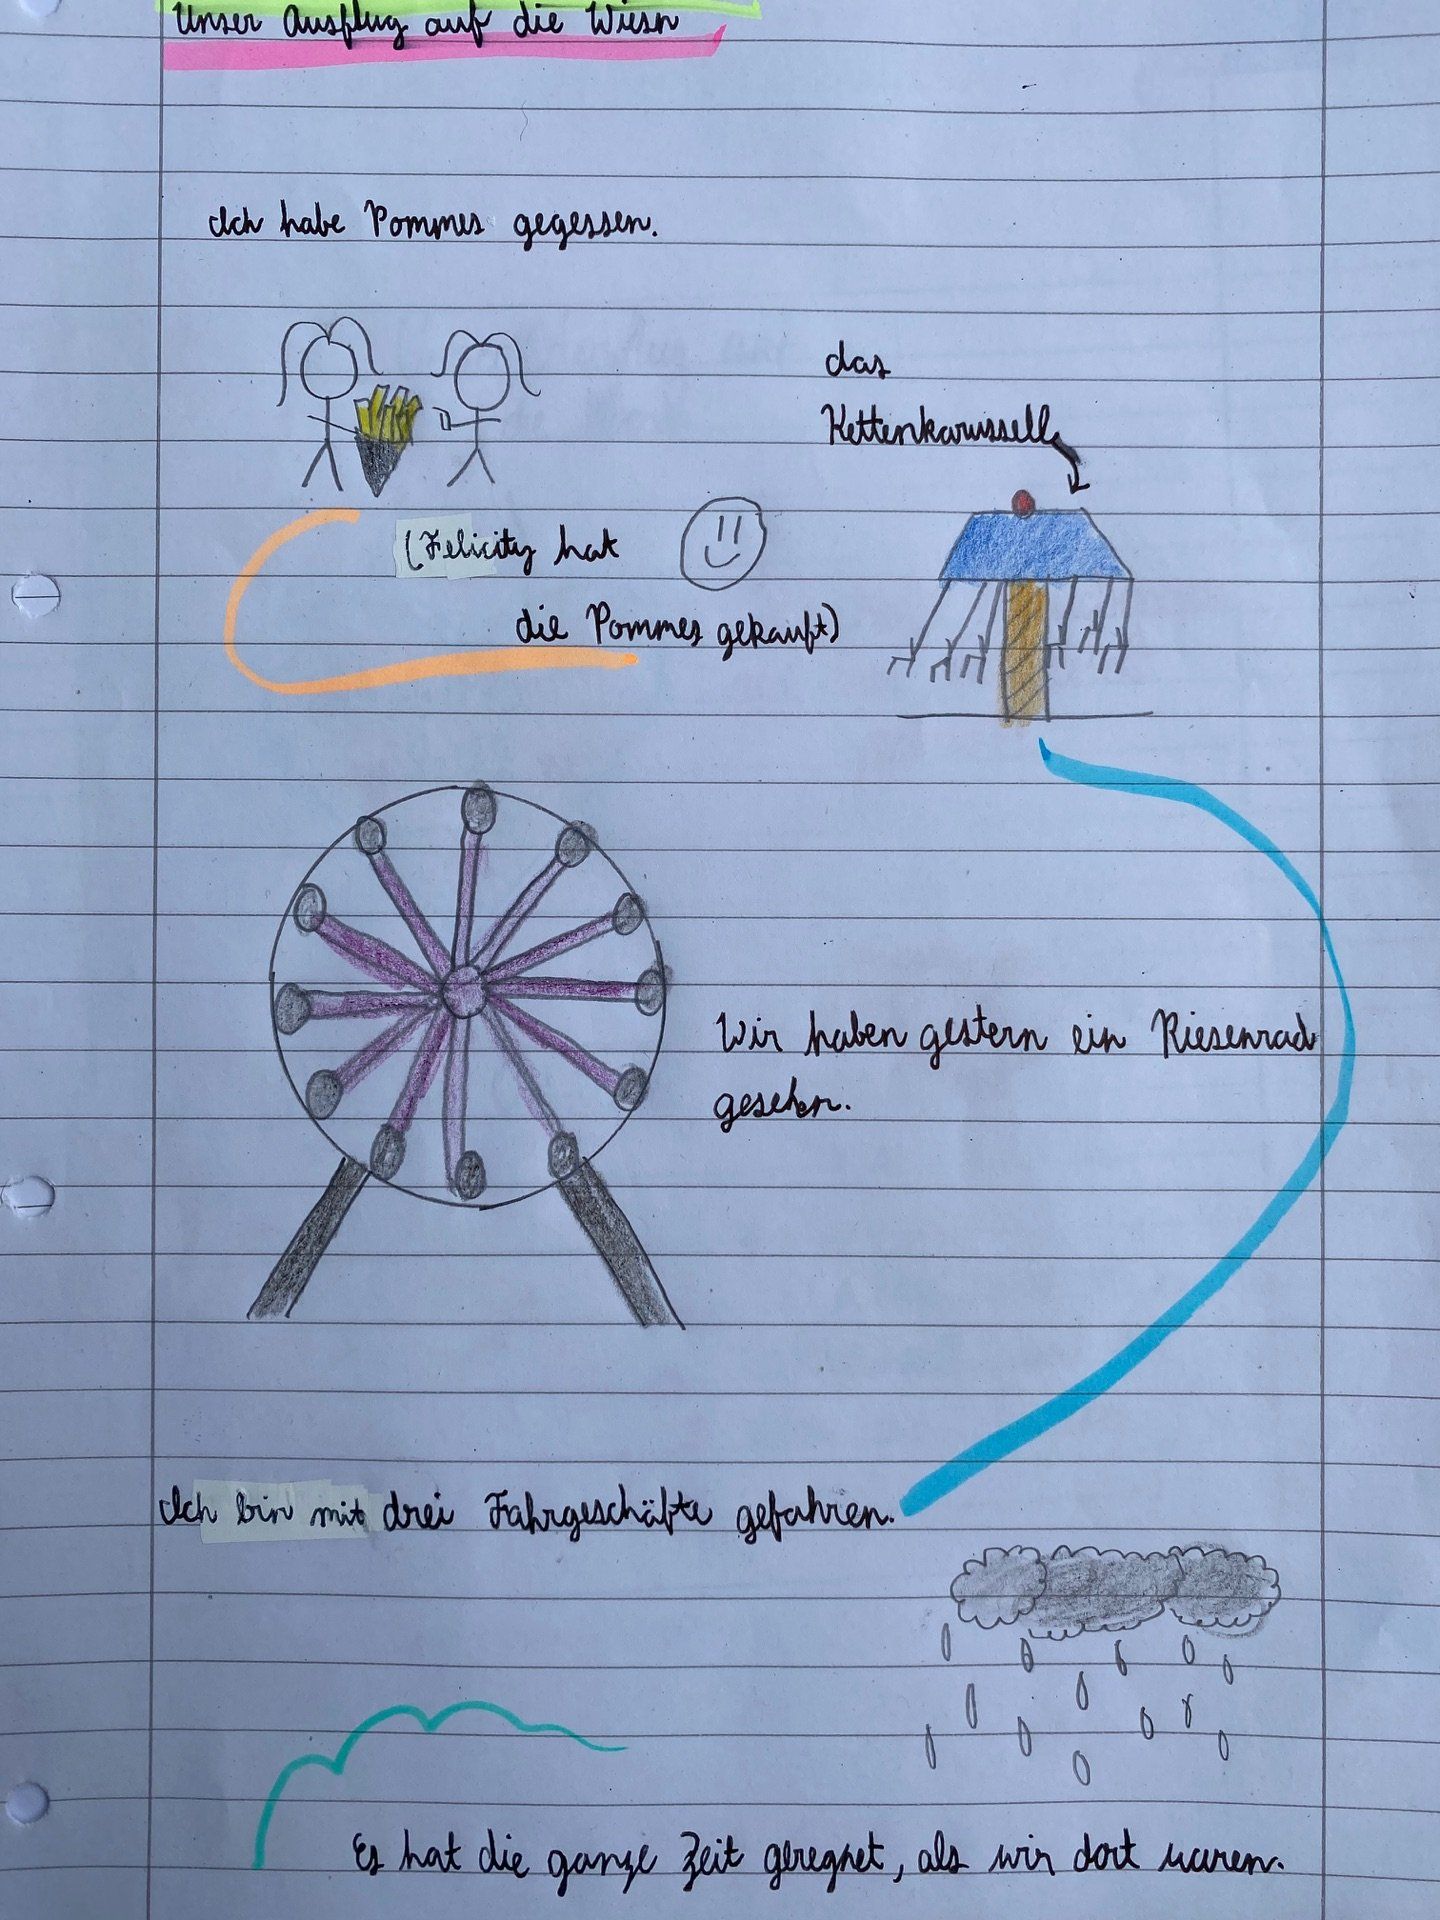 Unser Ausflug auf die Wiesn
Ich habe Pommes gegessen.
das
Kettenkarussell
(Felicity hat
die Pommes gekauft)
Wir haben gestern ein Riesenrad
gesehen.
Ich bin mit drei Fahrgeschäfte gefahren.
Es hat die ganze Zeit geregnet, als wir dort waren.